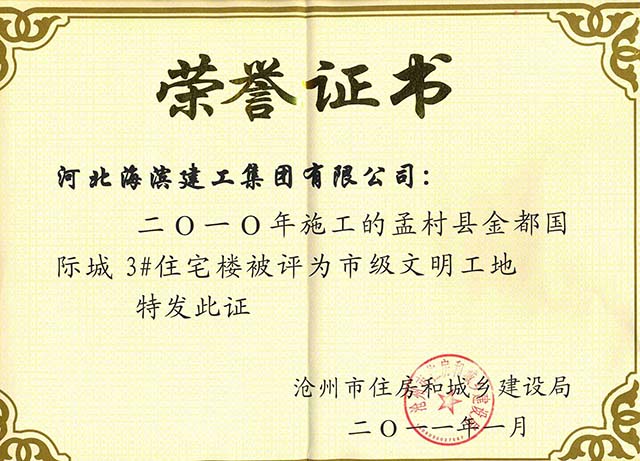 荣誉证书
河北海滨建工集团有限公司：
二〇一〇年施工的孟村县金都国
际城 3#住宅楼被评为市级文明工地
特发此证
沧州市住房和城乡建设局
二〇一一年一月